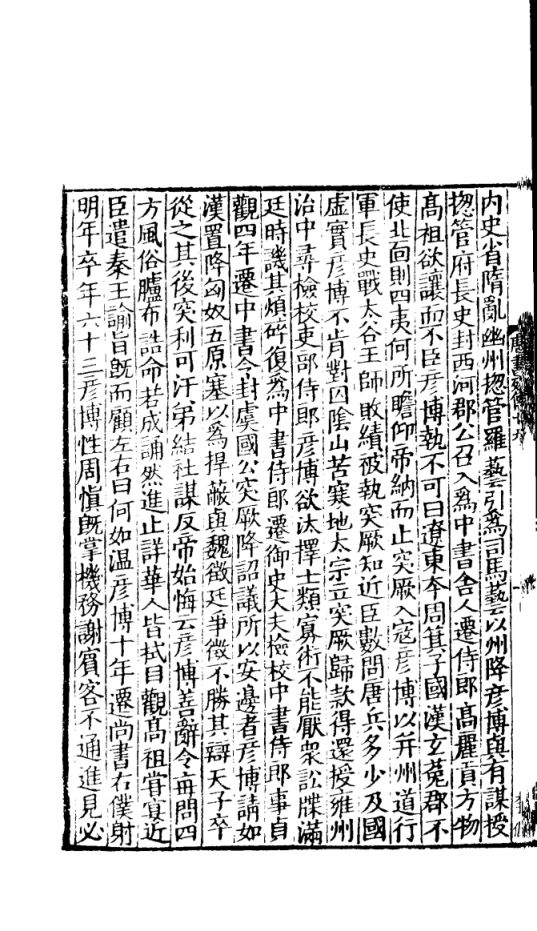 內史省隋亂幽州揔管羅藝引爲司馬藝以州降彦博與有謀授
揔管府長史封西河郡公召入爲中書舍人遷侍郎髙麗貢方物
髙祖欲讓而不臣彦博執不可曰遼東本周箕子國漢玄菟郡不
使北面則四夷何所瞻仰帝納而止突厥入寇彦博以并州道行
軍長史戰太谷王師敗績被執突厥知近臣數問唐兵多少及國
虚實彦博不肯對囚陰山苦寒地太宗立突厥歸款得還授雍州
治中尋檢校吏部侍郎彦博欲汰擇士類寡術不能厭衆訟牒滿
廷時譏其煩碎復爲中書侍郎遷御史大夫檢校中書侍郎事貞
觀四年遷中書令封虞國公突厥降詔議所以安邊者彦博請如
漢置降匈奴五原塞以爲捍蔽與魏徵廷爭徵不勝其辯天子卒
從之其後突利可汗弟結社謀反帝始悔云彦博善辭令毎問四
方風俗臚布誥命若成誦然進止詳華人皆拭目觀髙祖甞宴近
臣遣秦王諭旨旣而顧左右曰何如温彦博十年遷尚書右僕射
明年卒年六十三彦博性周愼旣掌機務謝賓客不通進見必